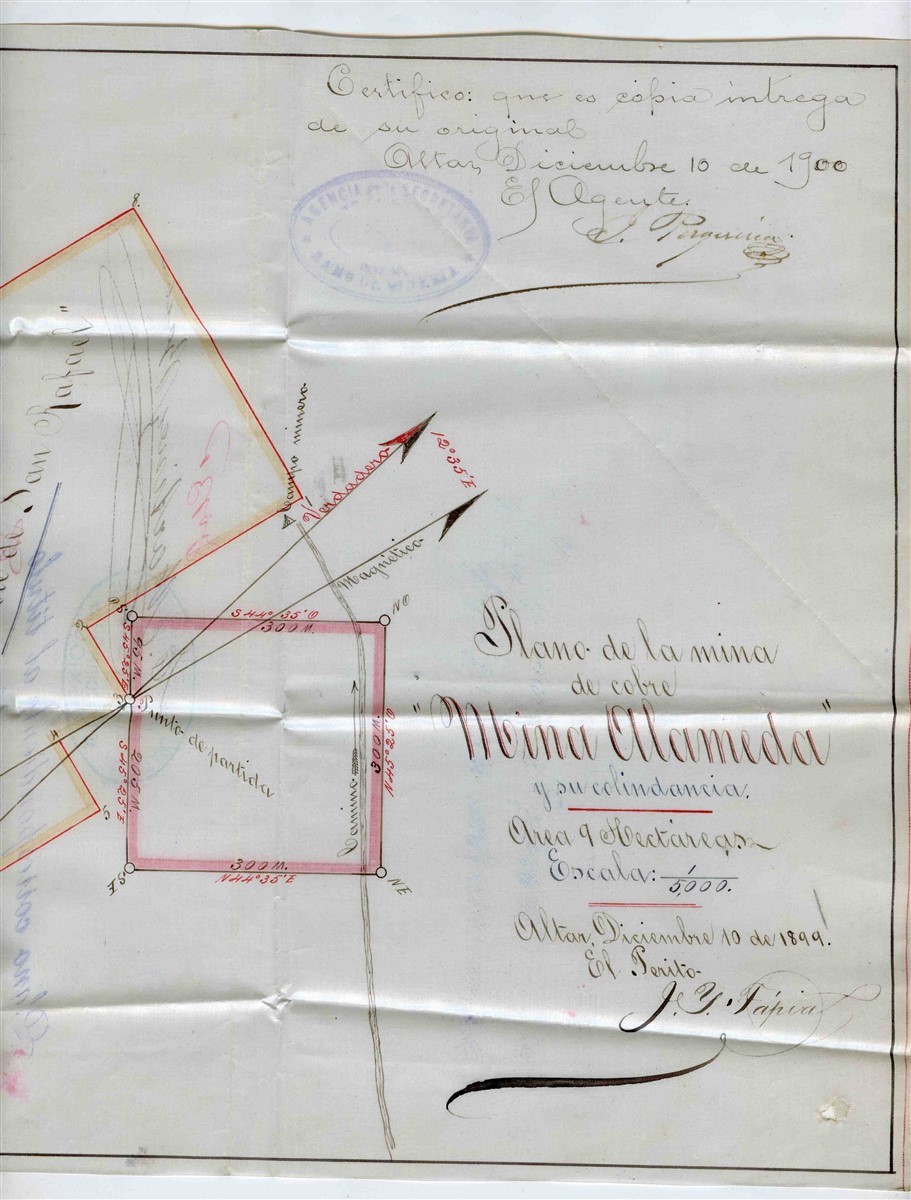 Certifico: que es copia intrega
de su original
Altar, Diciembre 10 de 1900
El Agente.
AGENCIA DE LA SECRETARIA
RAMO DE MINERIA
8.
San Rafael"
Campo minero
Verdadero
12° 35' E
Magnético
S 44° 35' O
300 M.
NO
S 45° 25' E
95 M.
Punto de partida
S 45° 25' E
205 M.
Camino
300 M.
N 45° 25' O
300 M.
N 44° 35' E
SE
NE
Plano de la mina
de cobre
"Mina Alameda"
y su colindancia.
Area 9 Hectáreas
Escala: 1/5,000.
Altar, Diciembre 10 de 1899.
El Perito
J. Y. Tápia